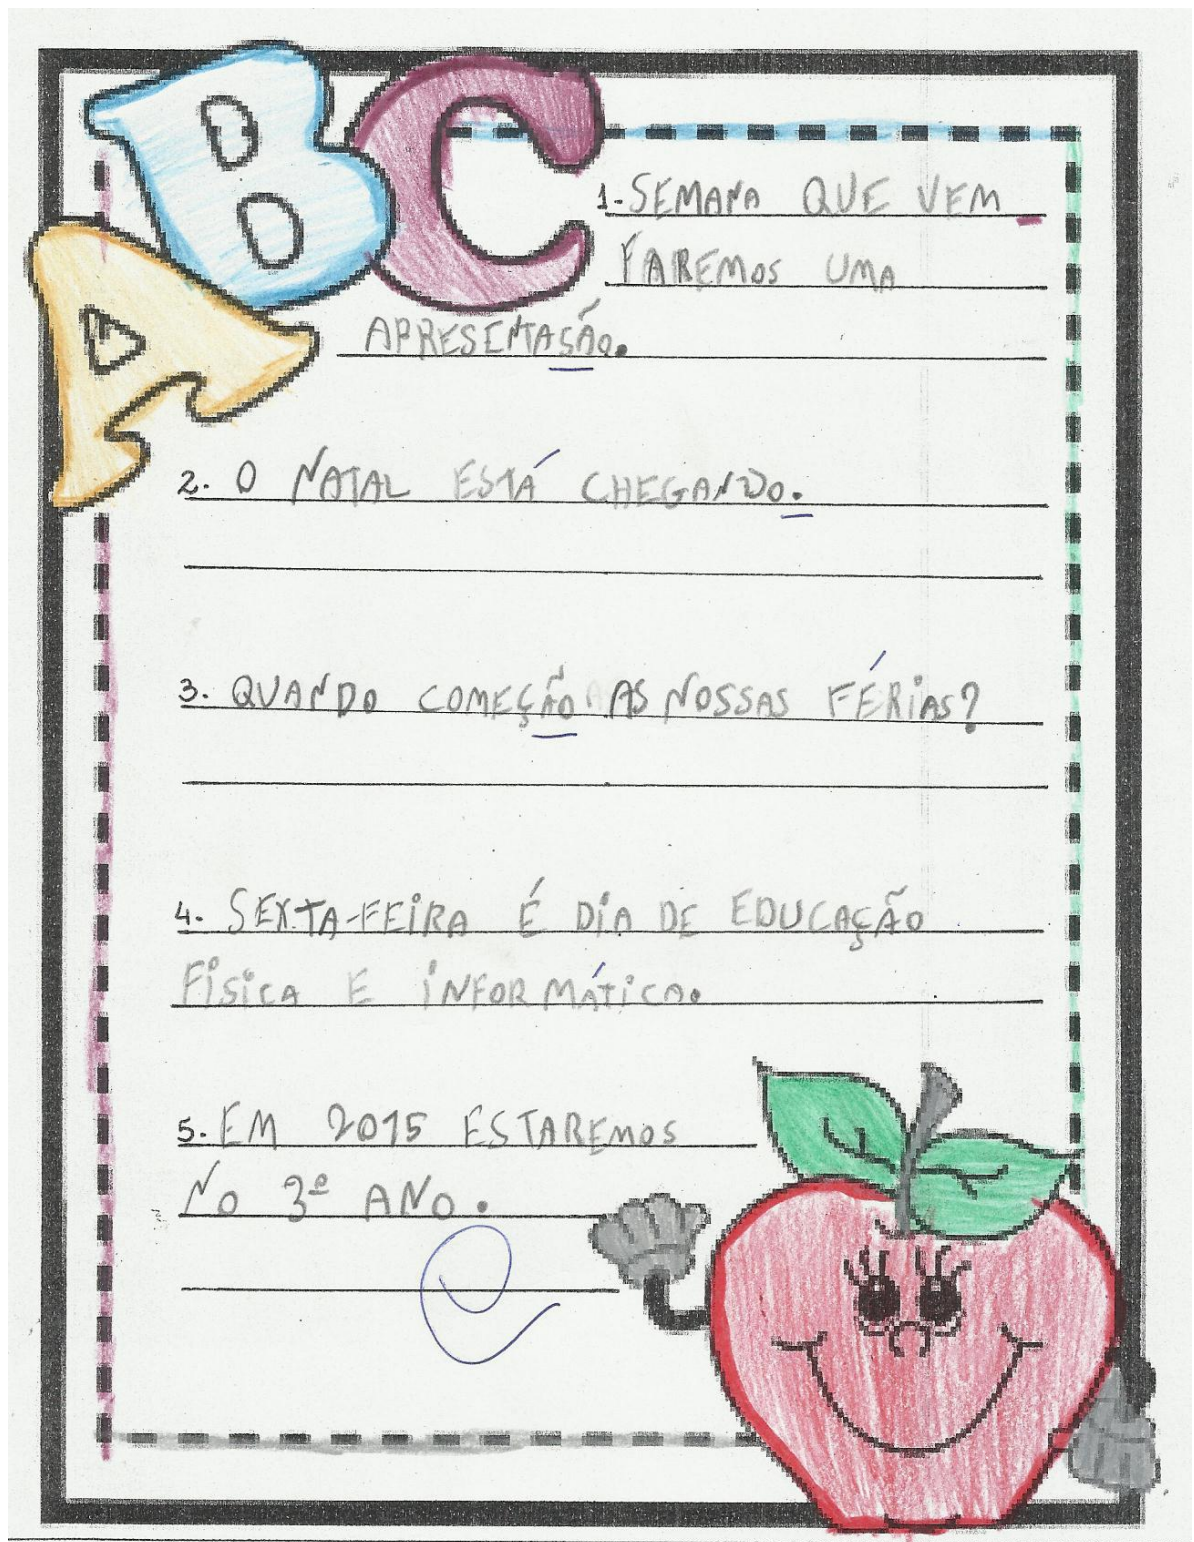 ABC
1-SEMANA QUE VEM
FAREMOS UMA
APRESENTASÃO.
2. O NATAL ESTÁ CHEGANDO.
3. QUANDO COMEÇÃO AS NOSSAS FÉRIAS?
4. SEXTA-FEIRA É DIA DE EDUCAÇÃO
FISICA E INFORMÁTICA.
5. EM 2015 ESTAREMOS
NO 3º ANO.